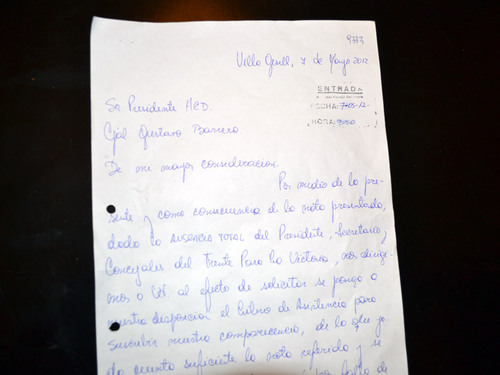 9773
Villa Gesell, 7 de Mayo 2012
ENTRADA
FECHA: 7-05-12
HORA: 9:00
Sr Presidente HCD.
Cjal Gustavo Barrera
De mi mayor consideración.
Por medio de la pre-
sente y como consecuencia de la nota presentada,
dada la AUSENCIA TOTAL del Presidente, Secretario,
Concejales del Frente Para La Victoria, nos dirigi-
mos a Ud. al efecto de solicitar se ponga a
nuestra disposición el Libro de Asistencia para
suscribir nuestra comparecencia, de lo que ya
da cuenta suficiente la nota referida y se
falta de